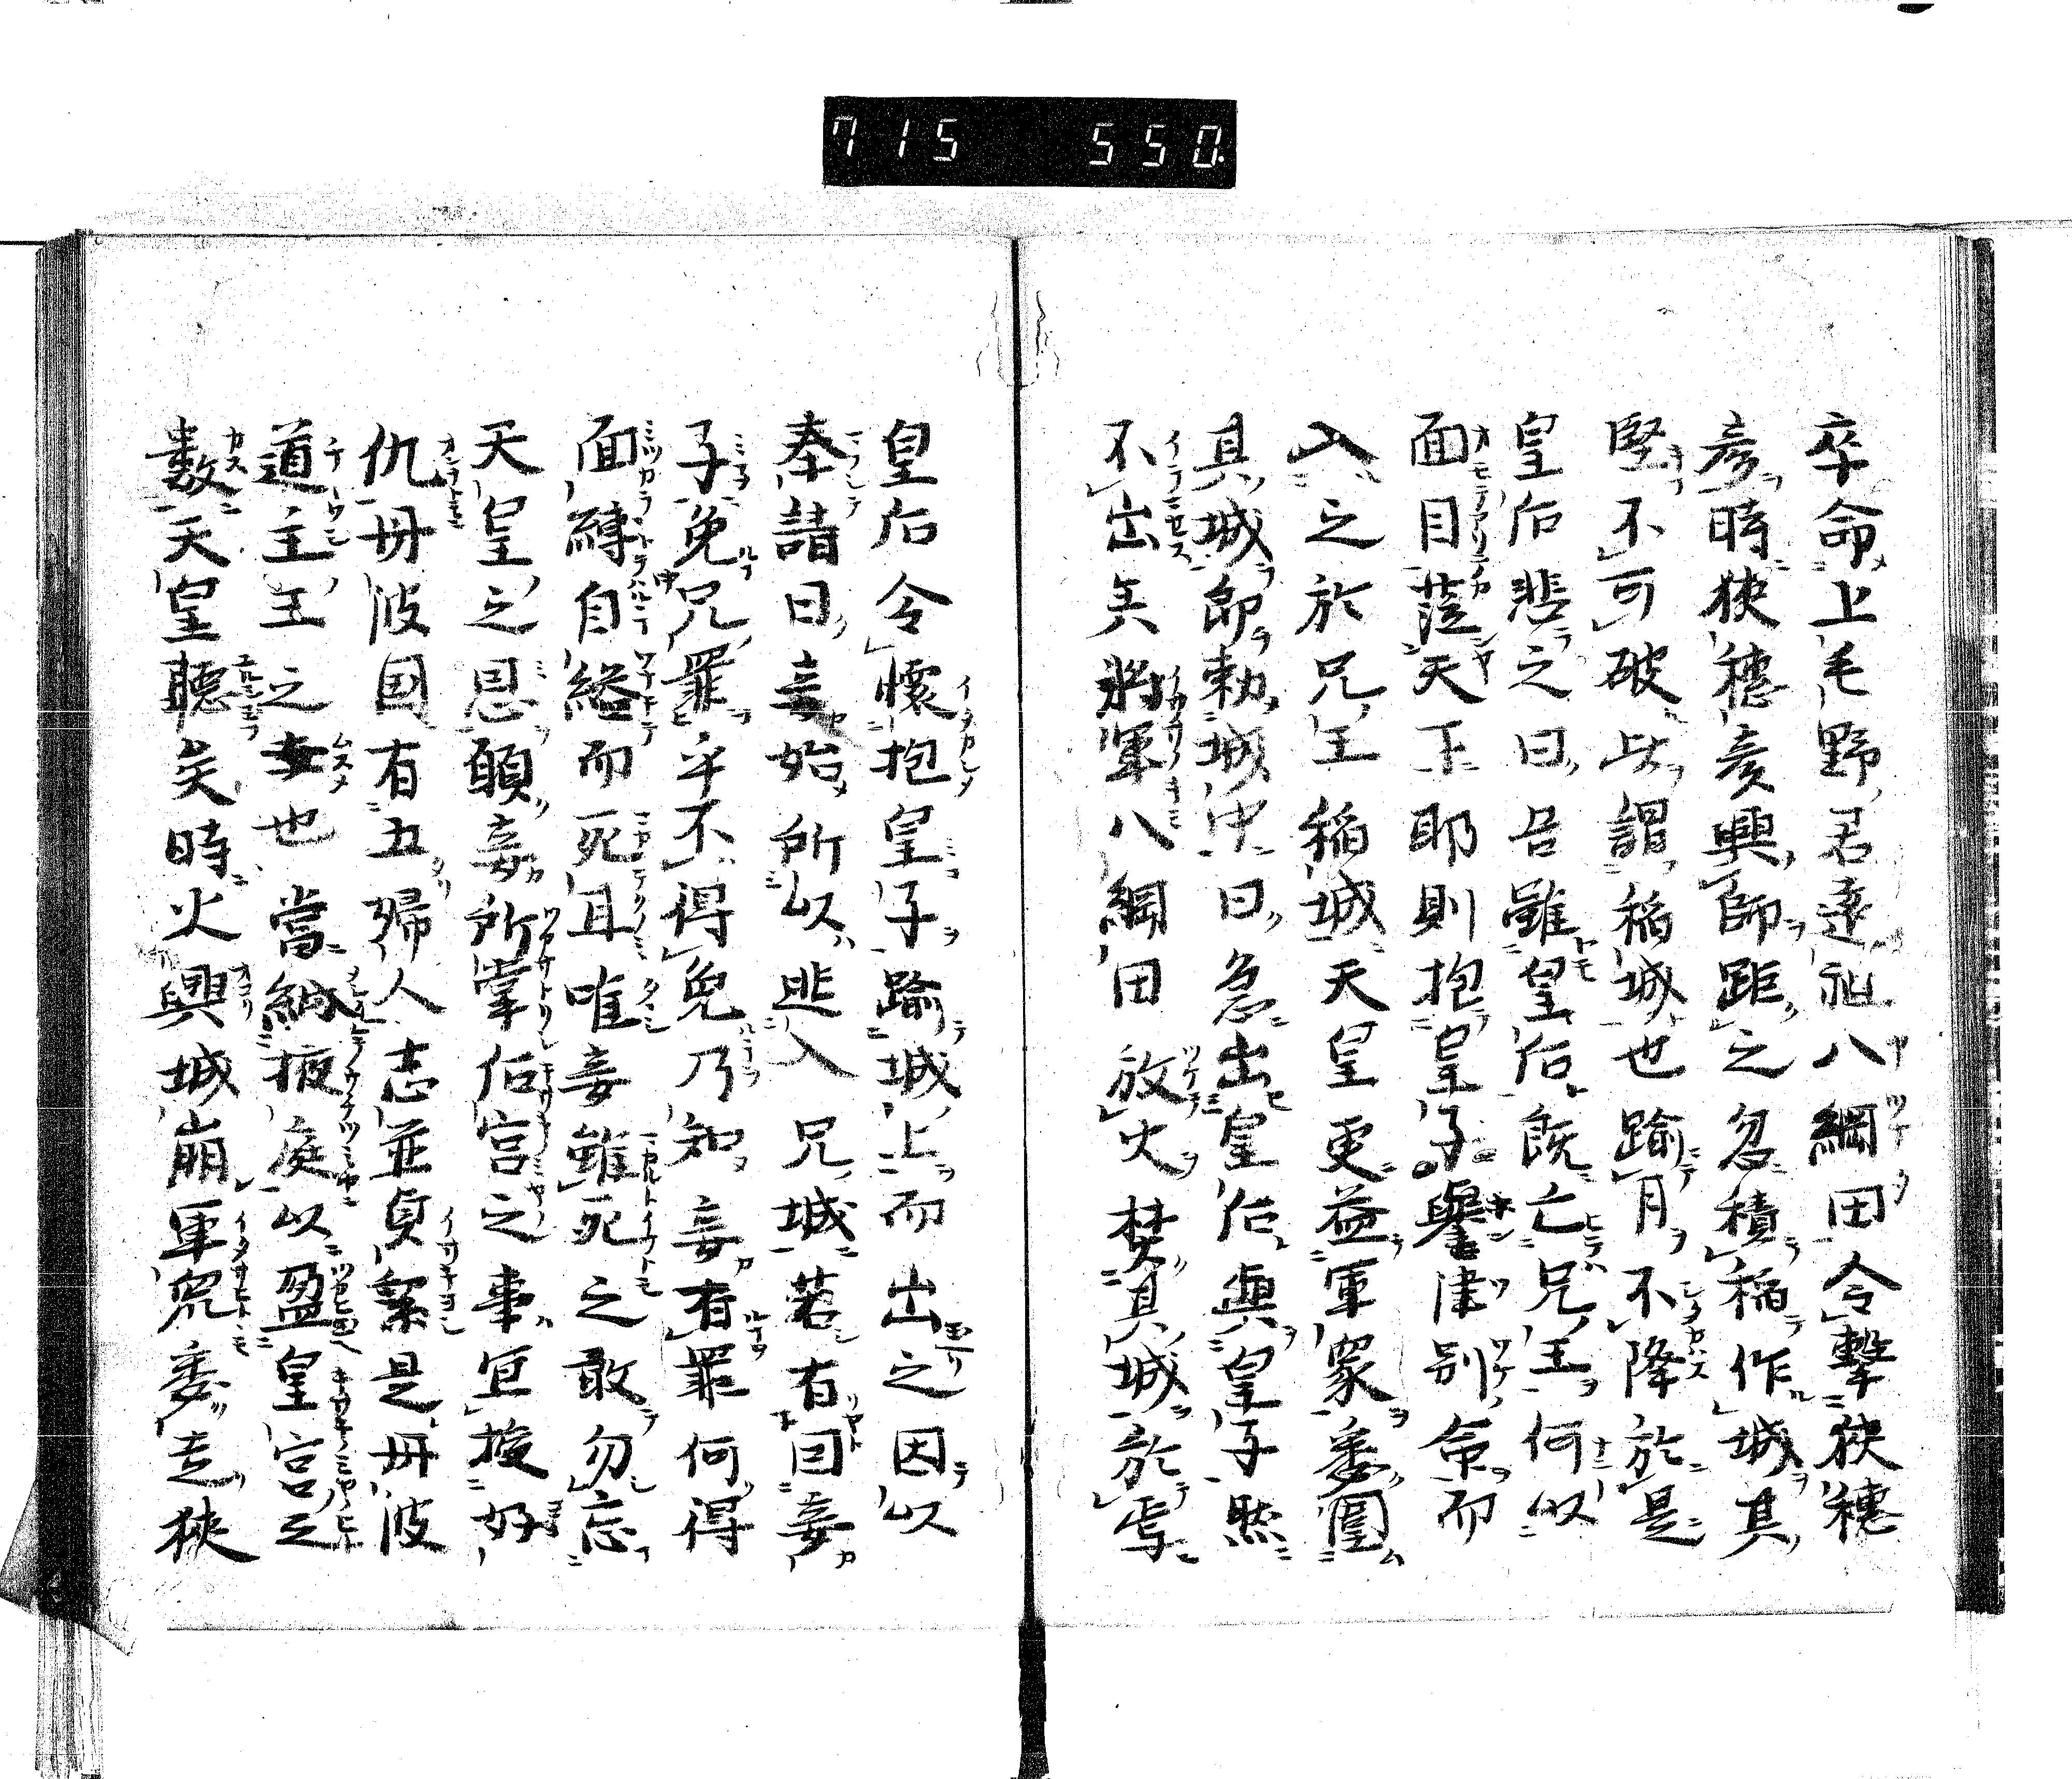 715 550.
卒命上毛野君遠祖八綱田令撃狭穂
彦時狭穂彦興師距之忽積稲作城其
堅不可破此謂稲城也踰月不降於是
皇后悲之曰吾雖皇后既亡兄王何以
面目莅天下耶則抱皇子譽津別命而
入之於兄王稲城天皇更益軍衆悉圍
其城即勅城中曰急出皇后與皇子然
不出矣将軍八綱田放火焚其城於焉
皇后令懐抱皇子踰城上而出之因以
奉請曰妾始所以逃入兄城若有因妾
子免兄罪乎不得免乃知妾有罪何得
面縛自縊而死耳唯妾雖死之敢勿忘
天皇之恩願妾所掌后宮之事宜授好
仇丹波国有五婦人志並貞潔是丹波
道主王之女也當納掖庭以盈皇宮之
數天皇聴矣時火興城崩軍衆悉走狭